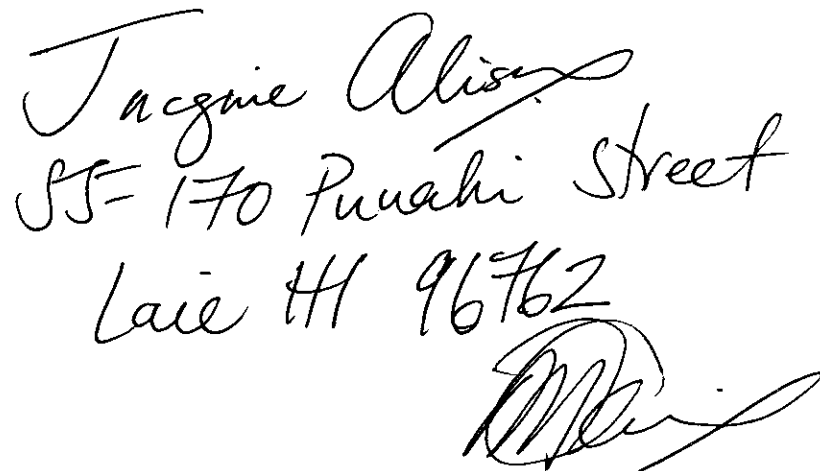 Jacqnie Alisa
55-170 Puuahi Street
Laie HI 96762